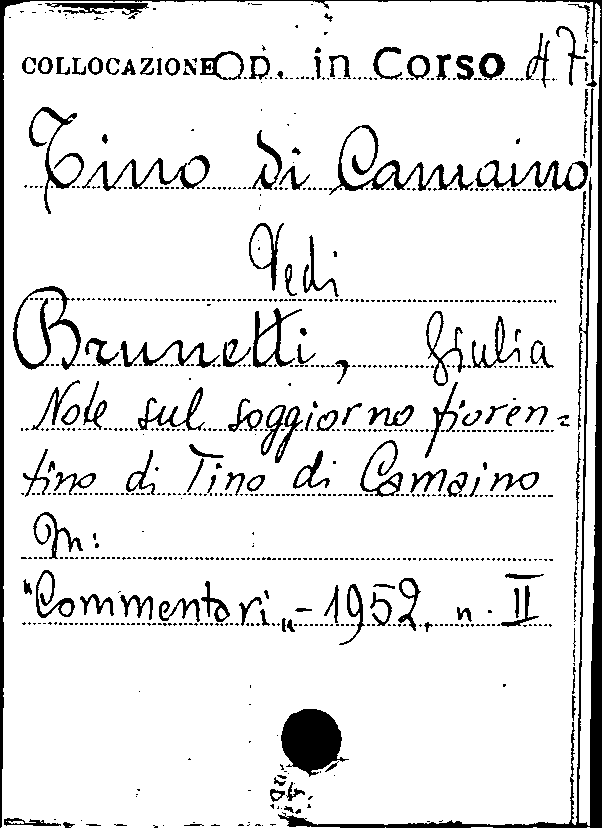 COLLOCAZIONE Op. in Corso 47
Tino di Camaino
Vedi
Brunetti, Giulia
Note sul soggiorno fioren=
tino di Tino di Camaino
In:
"Commentari„ - 1952. n. II